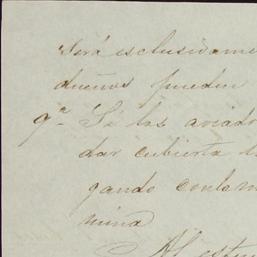 Será esclusivame
dueños pueden
9ª Si los aviado
dar cubierta la
gando con la m
mina
Al estu